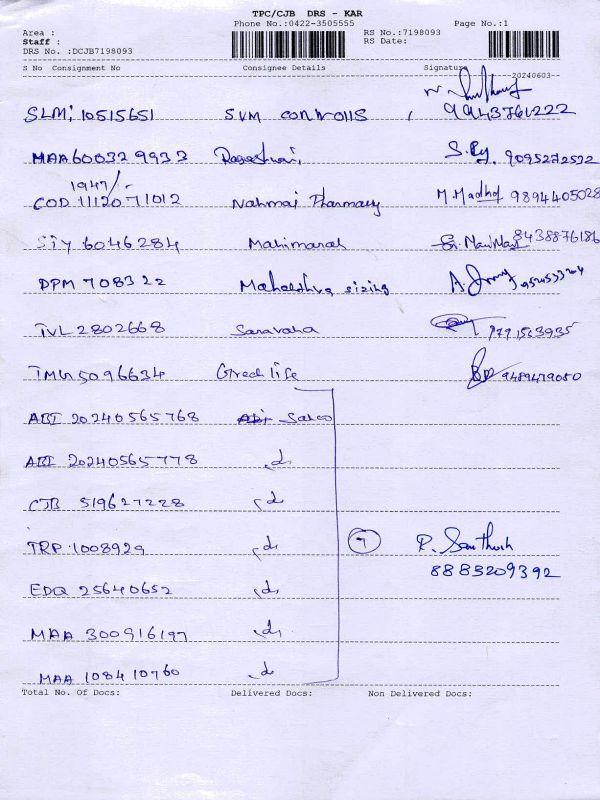 TPC/CJB DRS - KAR
Phone No.:0422-3505555 Page No.:1
Area :
Staff :
DRS No. :DCJB7198093
RS No.:7198093
RS Date:
S No Consignment No Consignee Details Signature
20240603
SLM; 10515651 SVM CONTROLS , 9943761222
MAA600329933 Rageshwari, 9095272532
1947/-
COD 11120771012 Nahmai Pharmacy M.Madhu 9894405028
STY 6046284 Mahimarah 8438876186
DPM 708322 sizing
TVL 2802668 Saravana
TMW5096634 Greenlife 9489479050
ABI 20240565768 Saroo
ABI 20240565778 do
CJB 519627228 do
TRP 1008929 do 7 P. Santhosh
8883209392
EDQ 25640652 do
MAA 300916197 do
MAA 108410760 do
Total No. Of Docs: Delivered Docs: Non Delivered Docs: